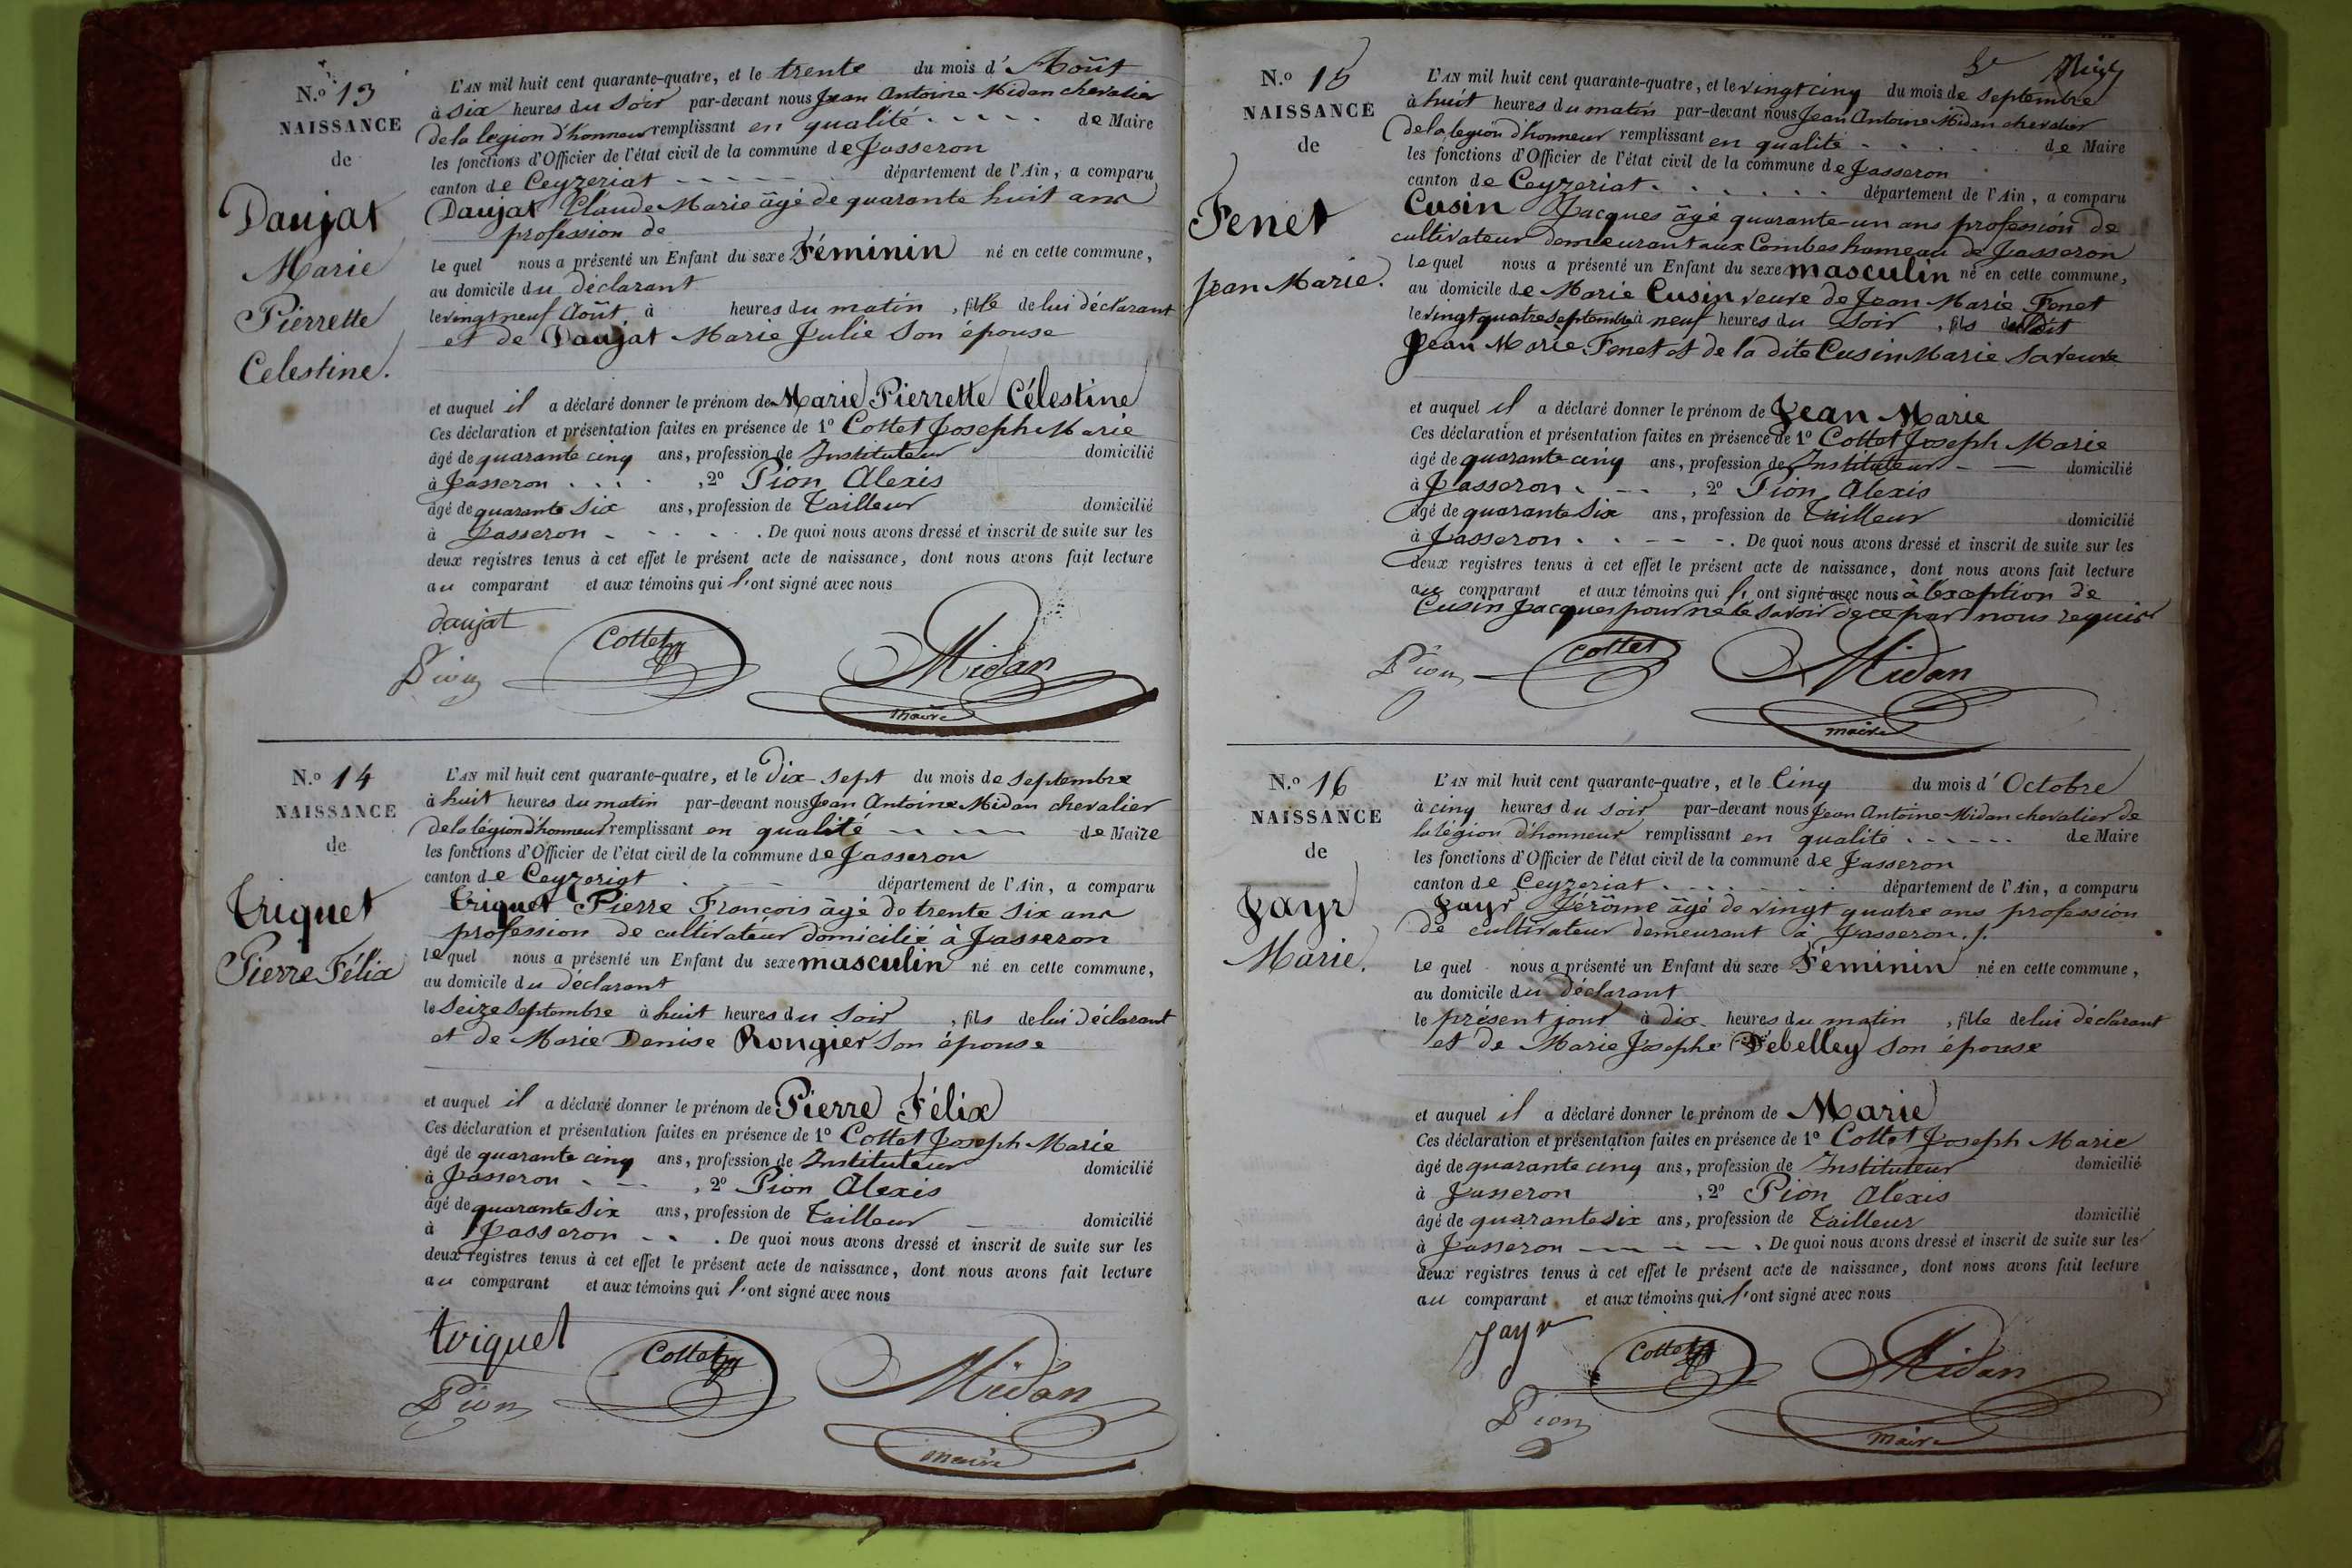 N.º 13
NAISSANCE
de
Daujat
Marie
Pierrette
Celestine.
L'AN mil huit cent quarante-quatre, et le trente du mois d'Août
à six heures du soir par-devant nous Jean Antoine Midan chevalier
de la legion d'honneur remplissant en qualité de Maire
les fonctions d'Officier de l'état civil de la commune de Jasseron
canton de Ceyzeriat département de l'Ain, a comparu
Daujat Claude Marie âgé de quarante huit ans
profession de
le quel nous a présenté un Enfant du sexe Féminin né en cette commune,
au domicile du déclarant
le vingt neuf Août à heures du matin, fille de lui déclarant
et de Daujat Marie Julie son épouse
et auquel il a déclaré donner le prénom de Marie Pierrette Célestine
Ces déclaration et présentation faites en présence de 1º Cottet Joseph Marie
âgé de quarante cinq ans, profession de Instituteur domicilié
à Jasseron , 2º Pion Alexis
âgé de quarante six ans, profession de Tailleur domicilié
à Jasseron - - - - . De quoi nous avons dressé et inscrit de suite sur les
deux registres tenus à cet effet le présent acte de naissance, dont nous avons fait lecture
au comparant et aux témoins qui l'ont signé avec nous
daujat
Cottet
Midan
Pion
maire
N.º 14
NAISSANCE
de
Triquet
Pierre Félix
L'AN mil huit cent quarante-quatre, et le Dix-sept du mois de septembre
à huit heures du matin par-devant nous Jean Antoine Midan chevalier
de la légion d'honneur remplissant en qualité de Maire
les fonctions d'Officier de l'état civil de la commune de Jasseron
canton de Ceyzeriat département de l'Ain, a comparu
Triquet Pierre François âgé de trente six ans
profession de cultivateur domicilié à Jasseron
le quel nous a présenté un Enfant du sexe masculin né en cette commune,
au domicile du déclarant
le seize septembre à huit heures du soir , fils de lui déclarant
et de Marie Denise Rongier son épouse
et auquel il a déclaré donner le prénom de Pierre Félix
Ces déclaration et présentation faites en présence de 1º Cottet Joseph Marie
âgé de quarante cinq ans, profession de Instituteur domicilié
à Jasseron - - - , 2º Pion Alexis
âgé de quarante six ans, profession de Tailleur domicilié
à Jasseron - - . De quoi nous avons dressé et inscrit de suite sur les
deux registres tenus à cet effet le présent acte de naissance, dont nous avons fait lecture
au comparant et aux témoins qui l'ont signé avec nous
triquet
Cottet
Midan
Pion
maire
N.º 15
NAISSANCE
de
Fenet
Jean Marie.
L'AN mil huit cent quarante-quatre, et le vingt cinq du mois de septembre
à huit heures du matin par-devant nous Jean Antoine Midan chevalier
de la legion d'honneur remplissant en qualité de Maire
les fonctions d'Officier de l'état civil de la commune de Jasseron
canton de Ceyzeriat département de l'Ain, a comparu
Cusin Jacques âgé quarante-un ans profession de
cultivateur demeurant aux Combes hameau de Jasseron
le quel nous a présenté un Enfant du sexe masculin né en cette commune,
au domicile de Marie Cusin veuve de Jean Marie Fenet
le vingt quatre septembre à neuf heures du soir , fils dudit
Jean Marie Fenet et de la dite Cusin Marie sa veuve
et auquel il a déclaré donner le prénom de Jean Marie
Ces déclaration et présentation faites en présence de 1º Cottet Joseph Marie
âgé de quarante-cinq ans, profession de Instituteur - - domicilié
à Jasseron - - - , 2º Pion Alexis
âgé de quarante six ans, profession de Tailleur domicilié
à Jasseron . . - - - . De quoi nous avons dressé et inscrit de suite sur les
deux registres tenus à cet effet le présent acte de naissance, dont nous avons fait lecture
au comparant et aux témoins qui l'ont signé avec nous à l'exception de
Cusin Jacques pour ne le savoir de ce par nous requis
Pion
Cottet
Midan
maire
N.º 16
NAISSANCE
de
Jayr
Marie.
L'AN mil huit cent quarante-quatre, et le Cinq du mois d'Octobre
à cinq heures du soir par-devant nous Jean Antoine Midan chevalier de
la légion d'honneur remplissant en qualité de Maire
les fonctions d'Officier de l'état civil de la commune de Jasseron
canton de Ceyzeriat département de l'Ain, a comparu
Jayr Jérôme âgé de vingt quatre ans profession
de cultivateur demeurant à Jasseron ./.
le quel nous a présenté un Enfant du sexe Féminin né en cette commune,
au domicile du déclarant
le présent jour à dix heures du matin , fille de lui déclarant
et de Marie Josephe Debelley son épouse
et auquel il a déclaré donner le prénom de Marie
Ces déclaration et présentation faites en présence de 1º Cottet Joseph Marie
âgé de quarante cinq ans, profession de Instituteur domicilié
à Jasseron , 2º Pion Alexis
âgé de quarante six ans, profession de Tailleur domicilié
à Jasseron - - - - . De quoi nous avons dressé et inscrit de suite sur les
deux registres tenus à cet effet le présent acte de naissance, dont nous avons fait lecture
au comparant et aux témoins qui l'ont signé avec nous
Jayr
Cottet
Midan
Pion
maire